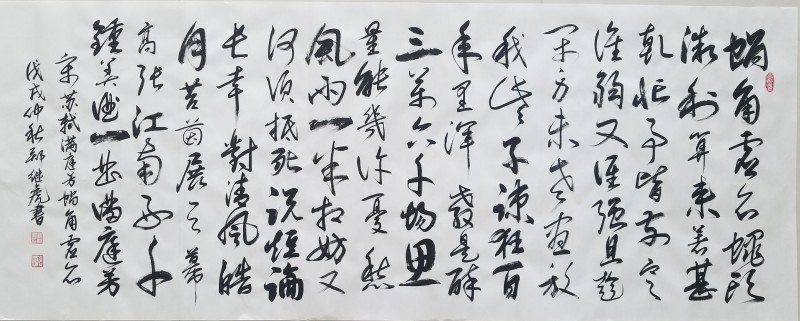 蝸角虚名蠅頭
微利算来着甚
乾忙事皆前定
谁弱又谁强且趁
闲身未老尽放
我些子疎狂百
年里浑教是醉
三萬六千场思
量能幾许憂愁
風雨一半相妨又
何须抵死说短論
长幸對清風皓
月苔茵展云幕
高张江南好千
鍾美酒一曲满庭芳
宋苏轼满庭芳蜗角虚名
戊戌仲秋 继虎書